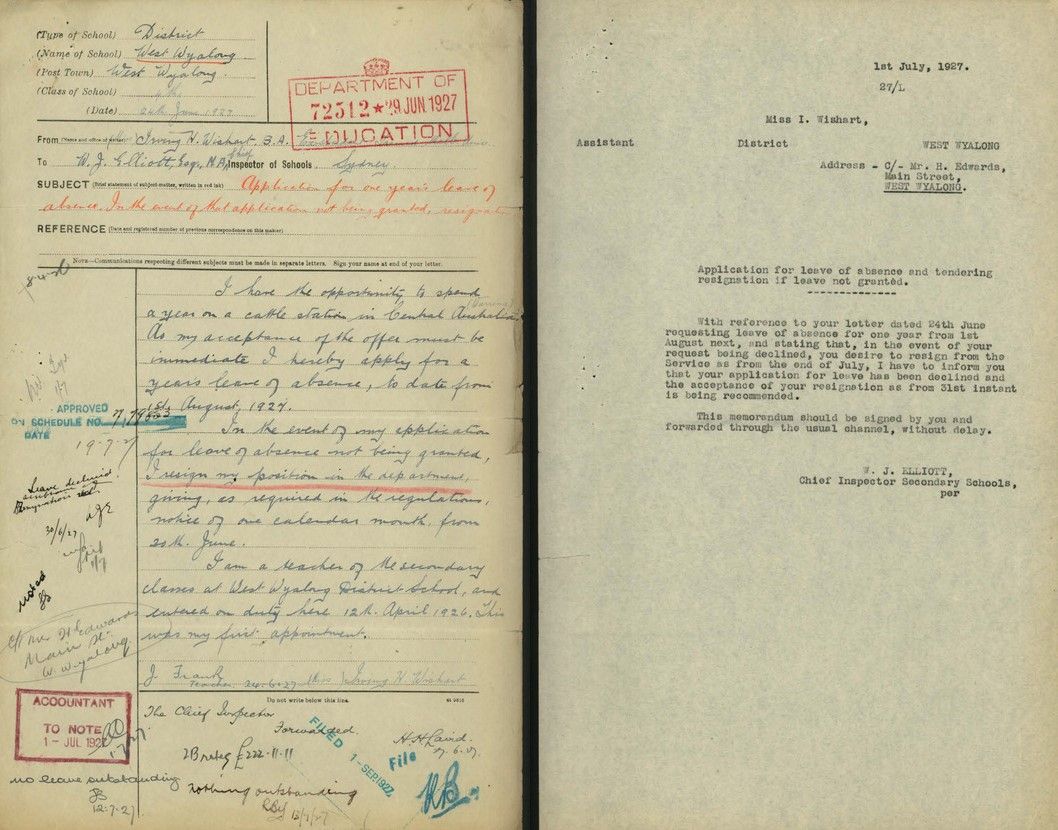 (Type of School) District
(Name of School) West Wyalong
(Post Town) West Wyalong.
(Class of School) 4th
(Date) 24th June 1927
DEPARTMENT OF
72512 ★ 29 JUN 1927
EDUCATION
From (Name and office of writer) Irving H. Wishart, B.A.
To W. J. Elliott, Esq., M.A., Chief Inspector of Schools, Sydney.
SUBJECT (Brief statement of subject-matter, written in red ink) Application for one year's leave of
absence. In the event of that application not being granted, resignat
REFERENCE (Date and registered number of previous correspondence on this matter)
NOTE—Communications respecting different subjects must be made in separate letters. Sign your name at end of your letter.
I have the opportunity to spend
a year on a cattle station in Central Australia.
As my acceptance of the offer must be
immediate I hereby apply for a
years leave of absence, to date from
1st August, 1927.
In the event of my application
for leave of absence not being granted,
I resign my position in the department,
giving, as required in the regulations,
notice of one calendar month, from
30th. June.
I am a teacher of the secondary
classes at West Wyalong District School, and
entered on duty here 12th. April 1926. This
was my first appointment.
J. Frank
Teacher. 24-6-27 (Miss) Irving H Wishart
APPROVED
ON SCHEDULE NO.
DATE
19-7-27
Leave declined
Resignation
30/6/27
noted
c/o Mr H Edwards
Main St.
W. Wyalong
ACCOUNTANT
TO NOTE
1 - JUL 1927
no leave outstanding
12-7-27
Do not write below this line.
The Chief Inspector
Forwarded.
£222-11-11
nothing outstanding
13/7/27
FILED
1 - SEP 1927
File
1st July, 1927.
27/L
Miss I. Wishart,
Assistant District WEST WYALONG
Address - C/- Mr. H. Edwards,
Main Street,
WEST WYALONG.
Application for leave of absence and tendering
resignation if leave not granted.
-------------
With reference to your letter dated 24th June
requesting leave of absence for one year from 1st
August next, and stating that, in the event of your
request being declined, you desire to resign from the
Service as from the end of July, I have to inform you
that your application for leave has been declined and
the acceptance of your resignation as from 31st instant
is being recommended.
This memorandum should be signed by you and
forwarded through the usual channel, without delay.
W. J. ELLIOTT,
Chief Inspector Secondary Schools,
per